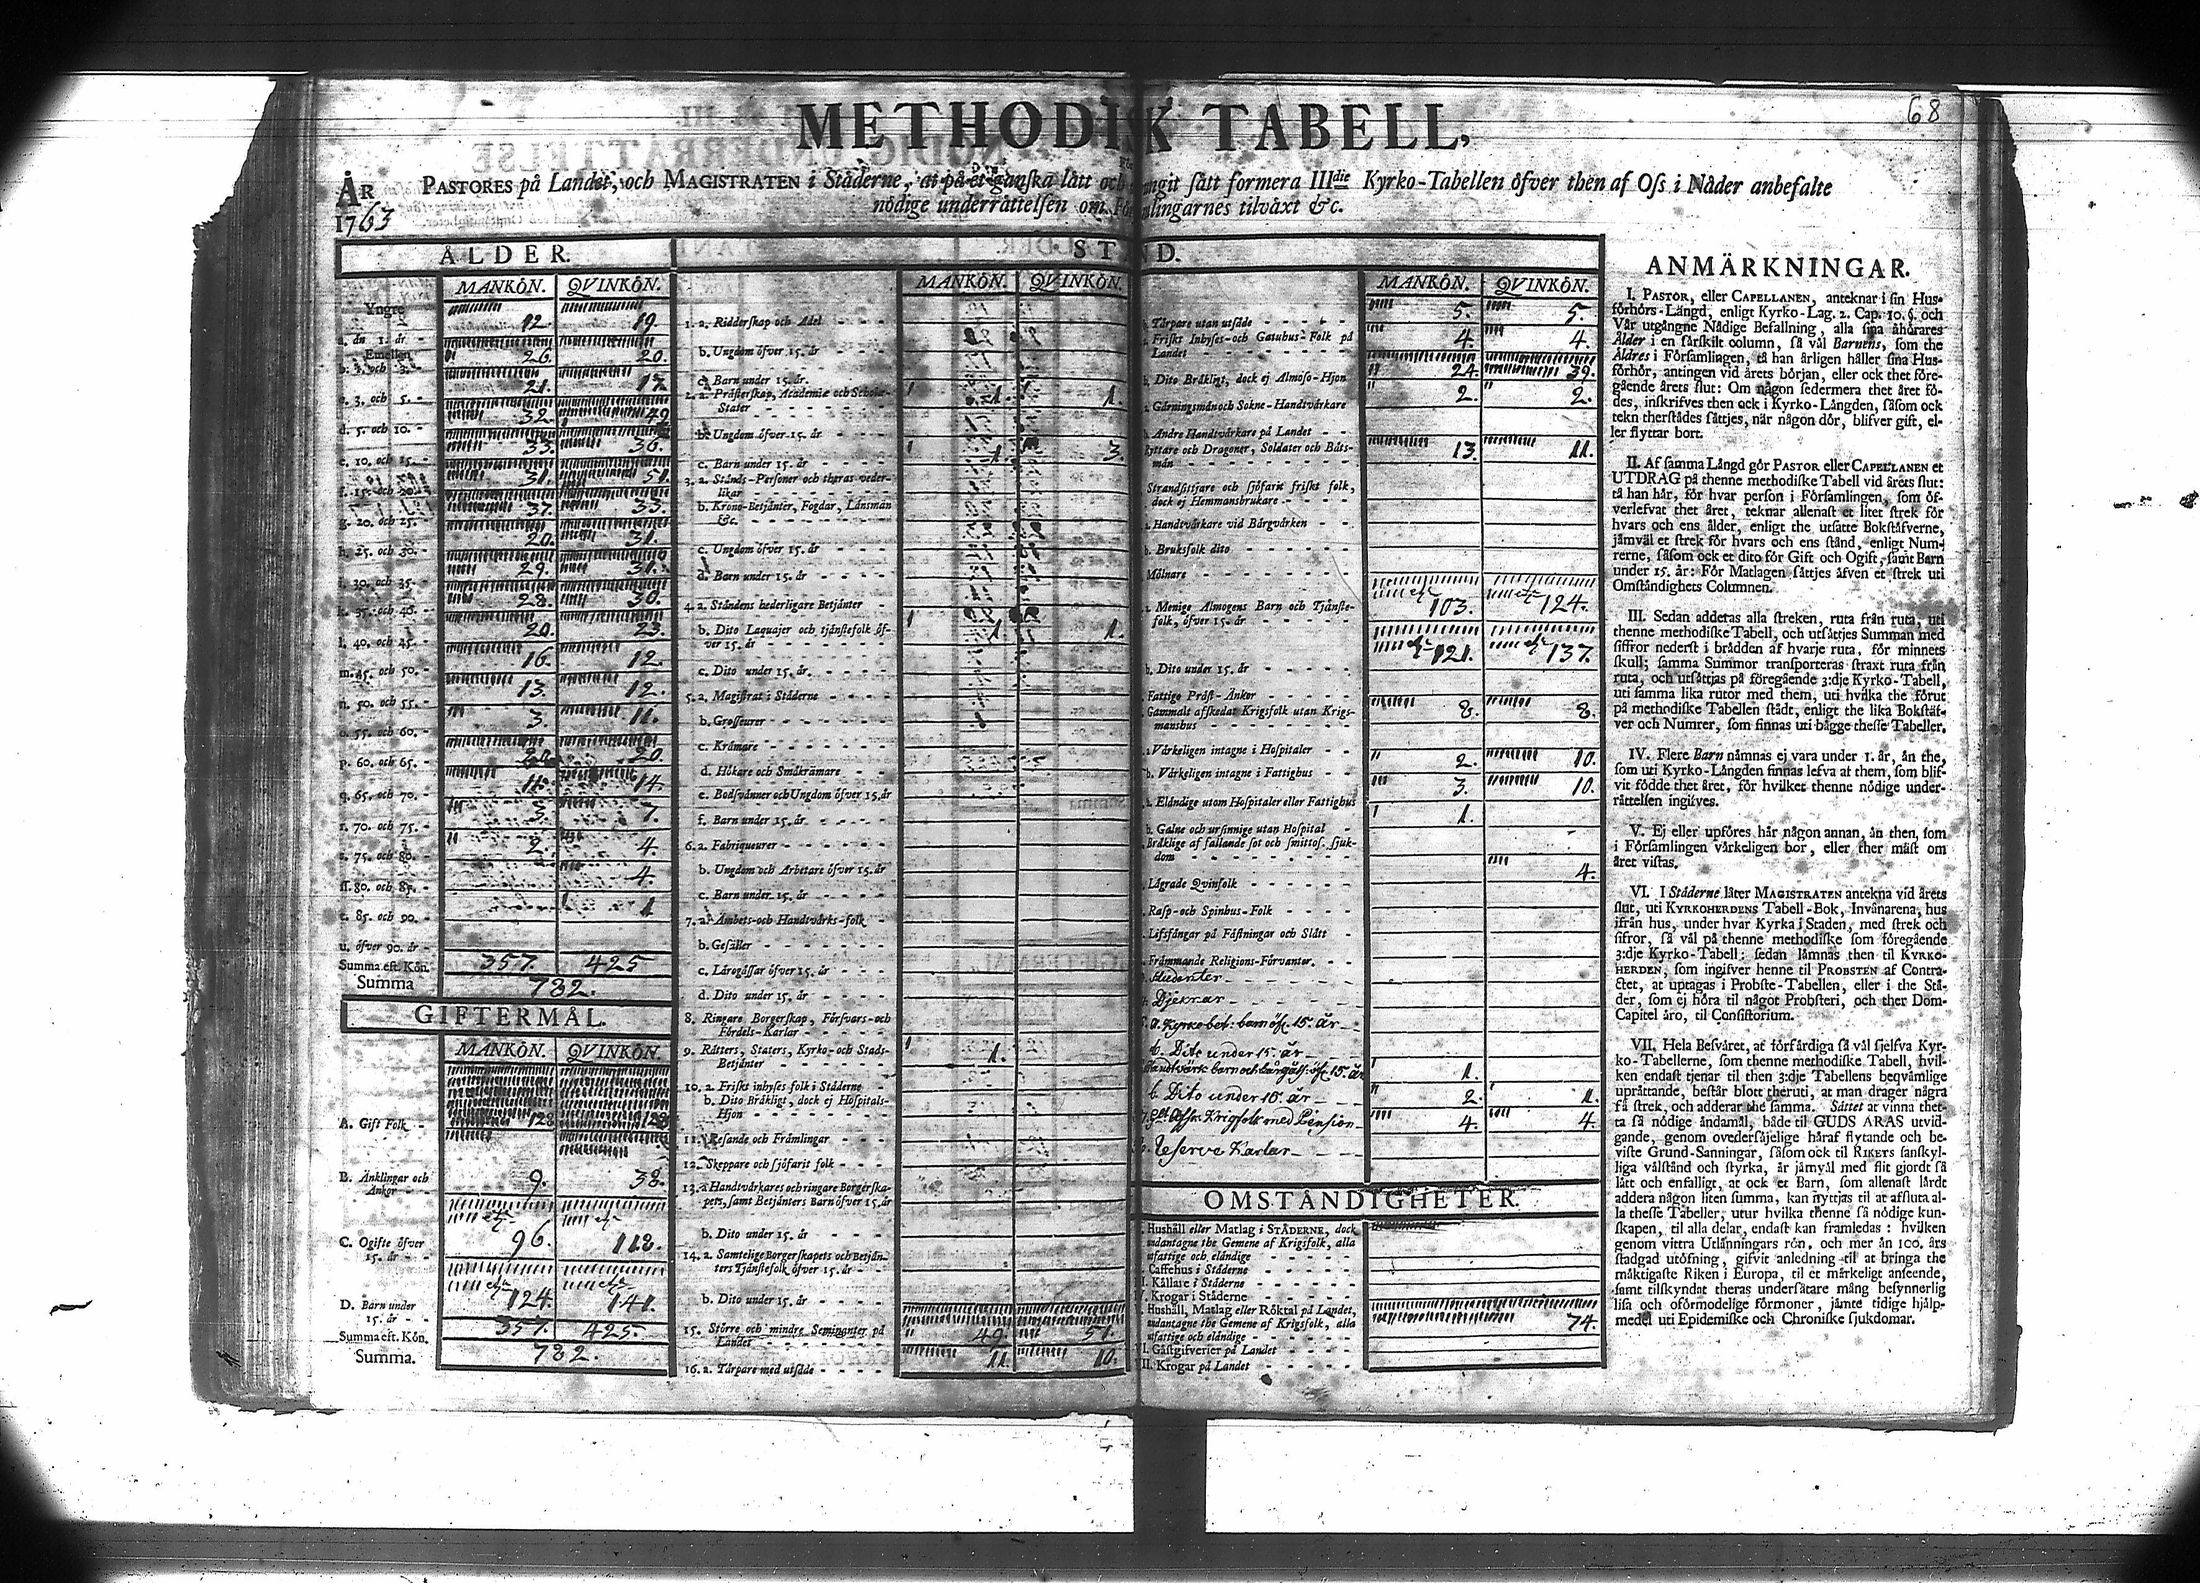 68
METHODIK TABELL,
ÅR 1763
PASTORES på Landet, och MAGISTRATEN i Städerne, at på et ganska lätt och sätt formera IIIdie Kyrko-Tabellen öfver then af Oss i Nåder anbefalte
nödige underrättelsen om tilväxt &c.
ÅLDER.
MANKÖN. QVINKÖN.
Yngre
a. än 1. år - 12. 19.
Emellan
b. 1. och 3. - 26. 20.
c. 3. och 5. - 21. 17.
d. 5. och 10. - 32. 49.
e. 10. och 15. - 33. 36.
f. 15. och 20. - 31. 51.
g. 20. och 25. - 37. 33.
h. 25. och 30. - 20. 31.
i. 30. och 35. - 29. 31.
k. 35. och 40. - 28. 30.
l. 40. och 45. - 20. 23.
m. 45. och 50. - 16. 12.
n. 50. och 55. - 13. 12.
o. 55. och 60. - 3. 11.
p. 60. och 65. - 20. 20.
q. 65. och 70. - 11. 14.
r. 70. och 75. - 3. 7.
s. 75. och 80. - 2. 4.
ff. 80. och 85. - 4.
t. 85. och 90. - 1
u. öfver 90. år -
Summa eft. Kön. 357. 425
Summa 782.
GIFTERMÅL.
MANKÖN. QVINKÖN.
A. Gift Folk - 128 128
B. Änklingar och Änkor - 9. 38.
C. Ogifte öfver 15. år - etc 96. etc 118.
D. Barn under 15. år - etc 124. etc 141.
Summa eft. Kön. 357. 425.
Summa. 782.
STÅND.
MANKÖN. QVINKÖN.
1. a. Ridderskap och Adel
b. Ungdom öfver 15. år
c. Barn under 15. år.
2. a. Prästerskap, Academiæ och Schole-Stater 1. 1.
b. Ungdom öfver 15. år
c. Barn under 15. år 1. 3.
3. a. Stånds-Personer och theras vederlikar
b. Krono-Betjänter, Fogdar, Länsmän &c.
c. Ungdom öfver 15. år
d. Barn under 15. år
4. a. Ståndens hederligare Betjänter
b. Dito Laquajer och tjänstefolk öfver 15. år 1. 1.
c. Dito under 15. år.
5. a. Magistrat i Städerne
b. Grosseurer
c. Krämare
d. Hökare och Småkrämare
e. Bodsvänner och Ungdom öfver 15. år
f. Barn under 15. år
6. a. Fabriqueurer
b. Ungdom och Arbetare öfver 15. år
c. Barn under 15. år
7. a. Ämbets-och Handtvärks-folk
b. Gesäller
c. Lärogåssar öfver 15. år
d. Dito under 15. år
8. Ringare Borgerskap, Försvars-och Fördels-Karlar
9. Rätters, Staters, Kyrko-och Stads-Betjänter 1.
10. a. Friskt inhyses folk i Städerne
b. Dito Bräkligt, dock ej Hospitals-Hjon
11. Resande och Främlingar
12. Skeppare och sjöfarit folk
13. a. Handtvärkares och ringare Borgerskapets, samt Betjänters Barn öfver 15. år
b. Dito under 15. år
14. a. Samtelige Borgerskapets och Betjänters Tjänstefolk öfver 15. år
b. Dito under 15. år
15. Större och mindre Hemmanter på Landet 49. 51.
16. a. Torpare med utsäde 11. 10.
MANKÖN. QVINKÖN.
Torpare utan utsäde 5. 5.
Friskt Inhyses-och Gatuhus-Folk på Landet 4. 4.
b. Dito Bräkligt, dock ej Almoso-Hjon 24. 39.
Gärningsmän och Sokne-Handtvärkare 2. 2.
Andre Handtvärkare på Landet
Ryttare och Dragoner, Soldater och Båtsmän 13. 11.
Strandsittjare och sjöfarit friskt folk, dock ej Hemmansbrukare
Handtvärkare vid Bärgvärken
b. Bruksfolk dito
Mölnare
Menige Almogens Barn och Tjänstefolk, öfver 15. år etc 103. etc 124.
b. Dito under 15. år etc 121. etc 137.
Fattige Präst-Änkor
Gammalt afskedat Krigsfolk utan Krigsmanshus 8. 8.
Värkeligen intagne i Hospitaler
b. Värkeligen intagne i Fattighus 2. 10.
Eländige utom Hospitaler eller Fattighus 3. 10.
b. Galne och ursinnige utan Hospital 1.
Bräklige af fallande sot och smittos. sjukdom
Lägrade Qvinfolk 4.
Rasp-och Spinhus-Folk
Lifsfångar på Fästningar och Slått
Främmande Religions-Förvanter.
Studenter
Djeknar
a. Kyrkobet: barn öfr. 15. år
b. Dito under 15. år
Handtvärk barn och lärogåss: öfr. 15. år 1.
b. Dito under 15. år 2. 1.
Afsk. Krigsfolk med Pension 4. 4.
Reserve Karlar
OMSTÄNDIGHETER.
Hushåll eller Matlag i STÄDERNE, dock undantagne the Gemene af Krigsfolk, alla utfattige och eländige
Caffehus i Städerne
Källare i Städerne
Krogar i Städerne
Hushåll, Matlag eller Röktal på Landet, undantagne the Gemene af Krigsfolk, alla utfattige och eländige 74.
Gästgifverier på Landet
Krogar på Landet
ANMÄRKNINGAR.
I. PASTOR, eller CAPELLANEN, anteknar i sin Hus-
förhörs-Längd, enligt Kyrko-Lag. 2. Cap. 10. §. och
Vår utgångne Nådige Befallning, alla sina åhörares
Ålder i en särskilt column, så väl Barnens, som the
Äldres i Församlingen, tå han årligen håller sina Hus-
förhör, antingen vid årets början, eller ock thet före-
gående årets slut: Om någon sedermera thet året fö-
des, inskrifves then ock i Kyrko-Längden, såsom ock
tekn therstädes sättjes, när någon dör, blifver gift, el-
ler flyttar bort.
II. Af samma Längd gör PASTOR eller CAPELLANEN et
UTDRAG på thenne methodiske Tabell vid årets slut:
tå han här, för hvar person i Församlingen, som öf-
verlefvat thet året, teknar allenast et litet strek för
hvars och ens ålder, enligt the utsatte Bokstäfverne,
jämväl et strek för hvars och ens stånd, enligt Num-
rerne, såsom ock et dito för Gift och Ogift, samt Barn
under 15. år: För Matlagen sättjes äfven et strek uti
Omständighets Columnen.
III. Sedan adderas alla streken, ruta från ruta, uti
thenne methodiske Tabell, och utsättjes Summan med
siffror nederst i brädden af hvarje ruta, för minnets
skull; samma Summor transporteras straxt ruta från
ruta, och utsättjas på föregående 3:dje Kyrko-Tabell,
uti samma lika rutor med them, uti hvilka the förut
på methodiske Tabellen städt, enligt the lika Bokstäf-
ver och Numrer, som finnas uti bägge thesse Tabeller.
IV. Flere Barn nämnas ej vara under 1. år, än the,
som uti Kyrko-Längden finnas lefva at them, som blif-
vit födde thet året, för hvilket thenne nödige under-
rättelsen ingifves.
V. Ej eller upföres här någon annan, än then, som
i Församlingen värkeligen bor, eller ther mäst om
året vistas.
VI. I Städerne låter MAGISTRATEN antekna vid årets
slut, uti KYRKOHERDENS Tabell-Bok, Invånarena, hus
ifrån hus, under hvar Kyrka i Staden, med strek och
sifror, så väl på thenne methodiske som föregående
3:dje Kyrko-Tabell: sedan lämnas then til KYRKO-
HERDEN, som ingifver henne til PROBSTEN af Contra-
ctet, at uptagas i Probste-Tabellen, eller i the Stä-
der, som ej höra til något Probsteri, och ther Dom-
Capitel äro, til Consistorium.
VII. Hela Besväret, at förfärdiga så väl sjelfva Kyr-
ko-Tabellerne, som thenne methodiske Tabell, hvil-
ken endast tjenar til then 3:dje Tabellens beqvämlige
uprättande, består blott theruti, at man drager några
få strek, och adderar the samma. Sättet at vinna thet-
ta så nödige ändamål, både til GUDS ÄRAS utvid-
gande, genom ovedersäjelige häraf flytande och be-
viste Grund-Sanningar, såsom ock til RIKETS sanskyl-
liga välstånd och styrka, är jämväl med flit gjordt så
lätt och enfalligt, at ock et Barn, som allenast lärdt
addera någon liten summa, kan nyttjas til at afsluta al-
la thesse Tabeller, utur hvilka thenne så nödige kun-
skapen, til alla delar, endast kan framledas: hvilken
genom vittra Utlänningars rön, och mer än 100. års
stadgad utöfning, gifvit anledning til at bringa the
mäktigaste Riken i Europa, til et märkeligt anseende,
samt tilskyndat theras undersåtare mång besynnerlig
lisa och oförmodelige förmoner, jämte tidige hjälp-
medel uti Epidemiske och Chroniske sjukdomar.